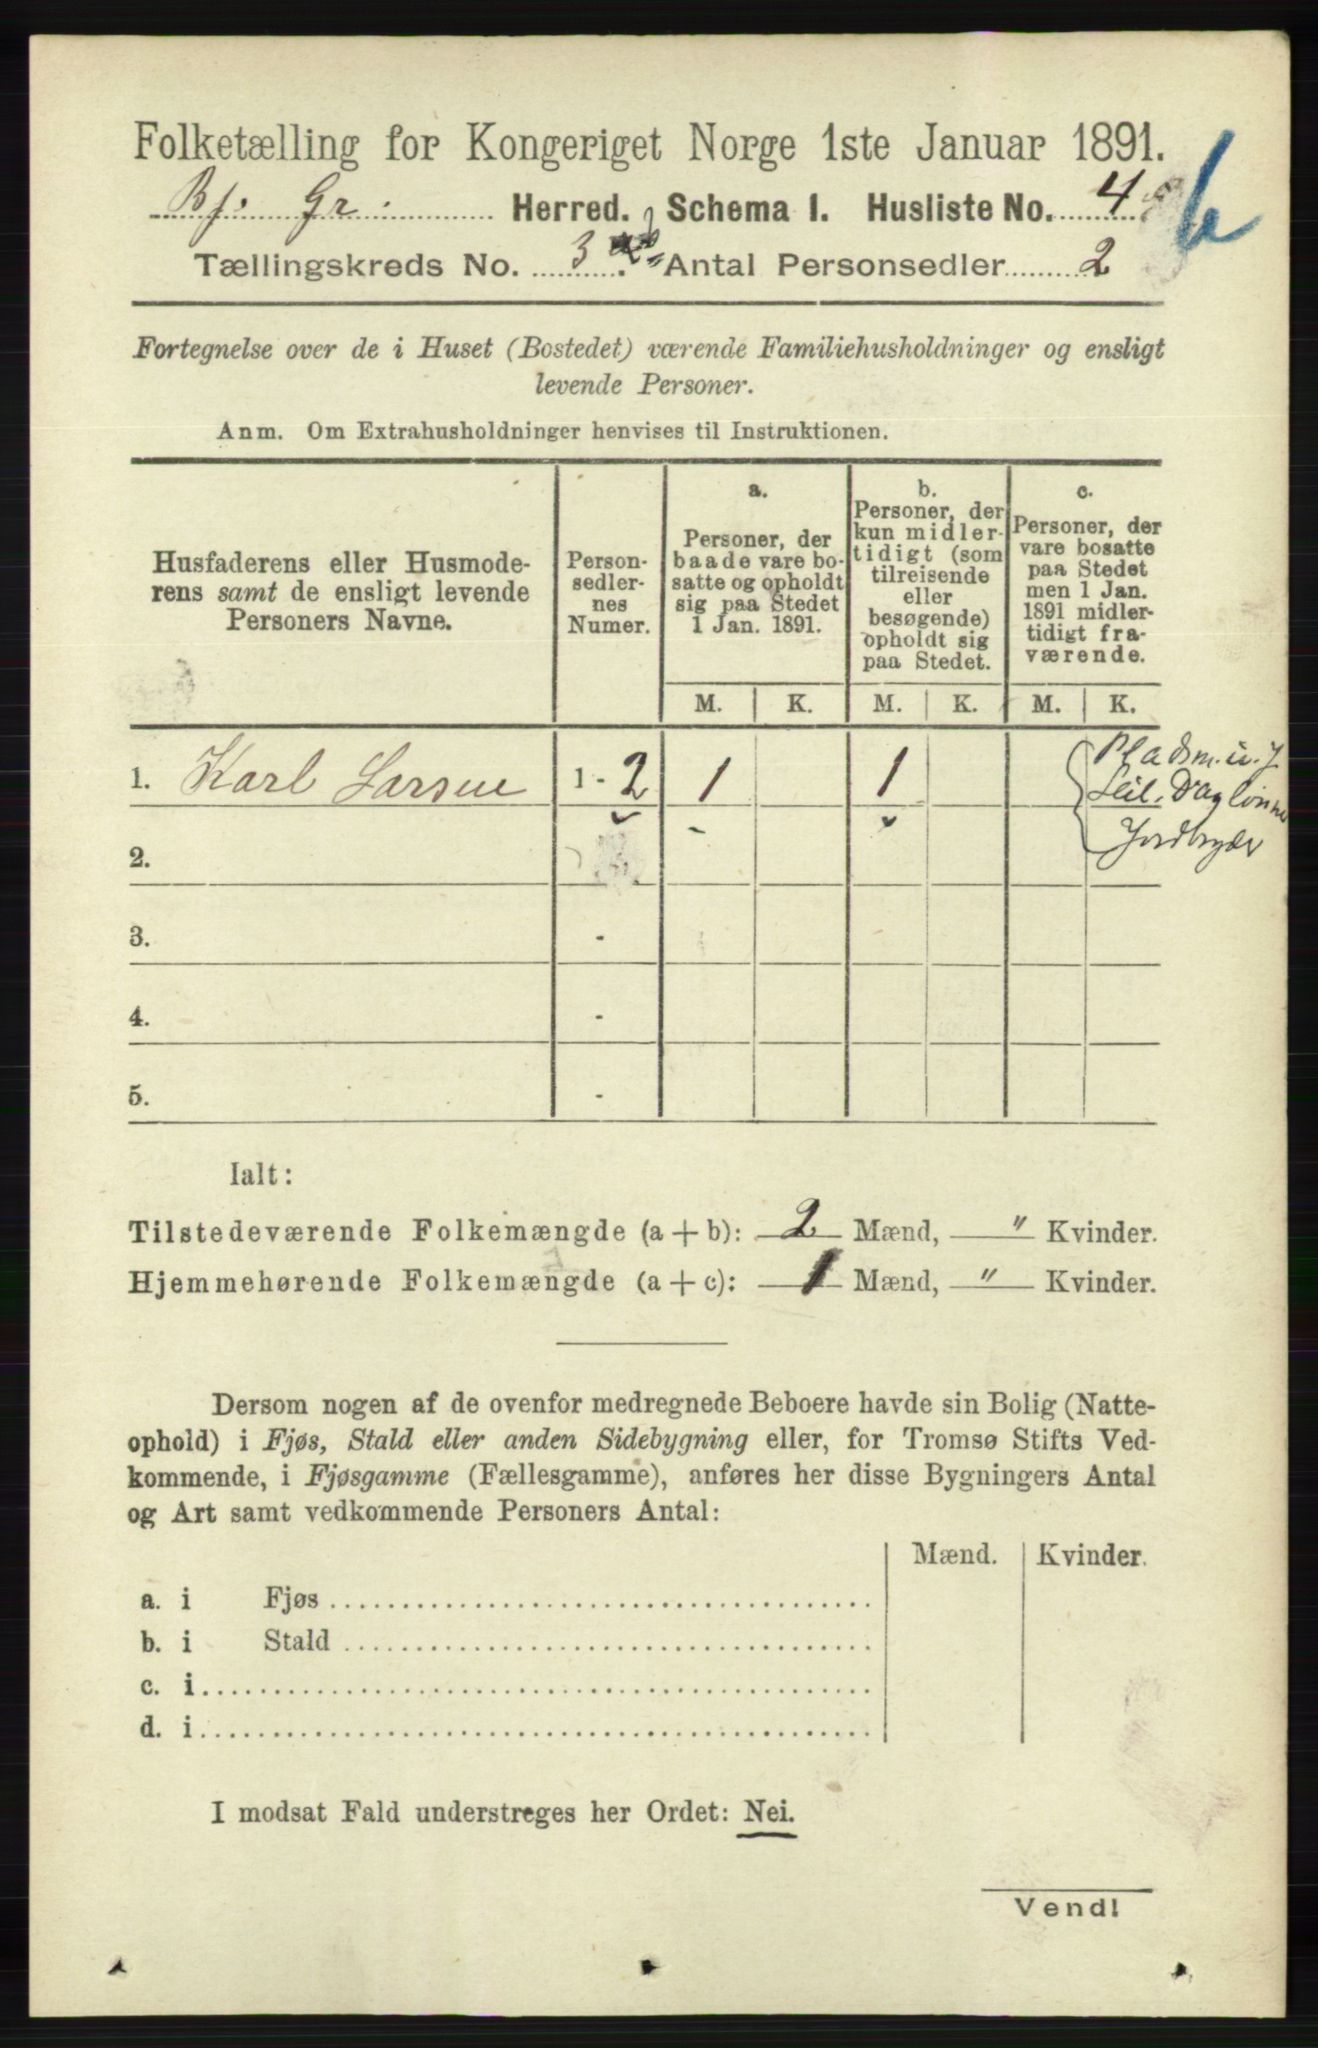 Folketælling for Kongeriget Norge 1ste Januar 1891.
Bj. Gr. Herred. Schema 1. Husliste No. 4 b
Tællingskreds No. 3 Antal Personsedler 2
Fortegnelse over de i Huset (Bostedet) værende Familiehusholdninger og ensligt
levende Personer.
Anm. Om Extrahusholdninger henvises til Instruktionen.
Husfaderens eller Husmode-
rens samt de ensligt levende
Personers Navne.
Person-
sedler-
nes
Numer.
a.
Personer, der
baade vare bo-
satte og opholdt
sig paa Stedet
1 Jan. 1891.
b.
Personer, der
kun midler-
tidigt (som
tilreisende
eller
besøgende)
opholdt sig
paa Stedet.
c.
Personer, der
vare bosatte
paa Stedet
men 1 Jan.
1891 midler-
tidigt fra-
værende.
M. K. M. K. M. K.
1. Karl Larsen 1 - 2 1 1
Pladsm. u. J
Leil. Daglønner
Jordbryder
2.
3. -
4. -
5. -
Ialt:
Tilstedeværende Folkemængde (a + b): 2 Mænd, " Kvinder.
Hjemmehørende Folkemængde (a + c): 1 Mænd, " Kvinder.
Dersom nogen af de ovenfor medregnede Beboere havde sin Bolig (Natte-
ophold) i Fjøs, Stald eller anden Sidebygning eller, for Tromsø Stifts Ved-
kommende, i Fjøsgamme (Fællesgamme), anføres her disse Bygningers Antal
og Art samt vedkommende Personers Antal:
Mænd. Kvinder.
a. i Fjøs
b. i Stald
c. i
d. i
I modsat Fald understreges her Ordet: Nei.
Vendl